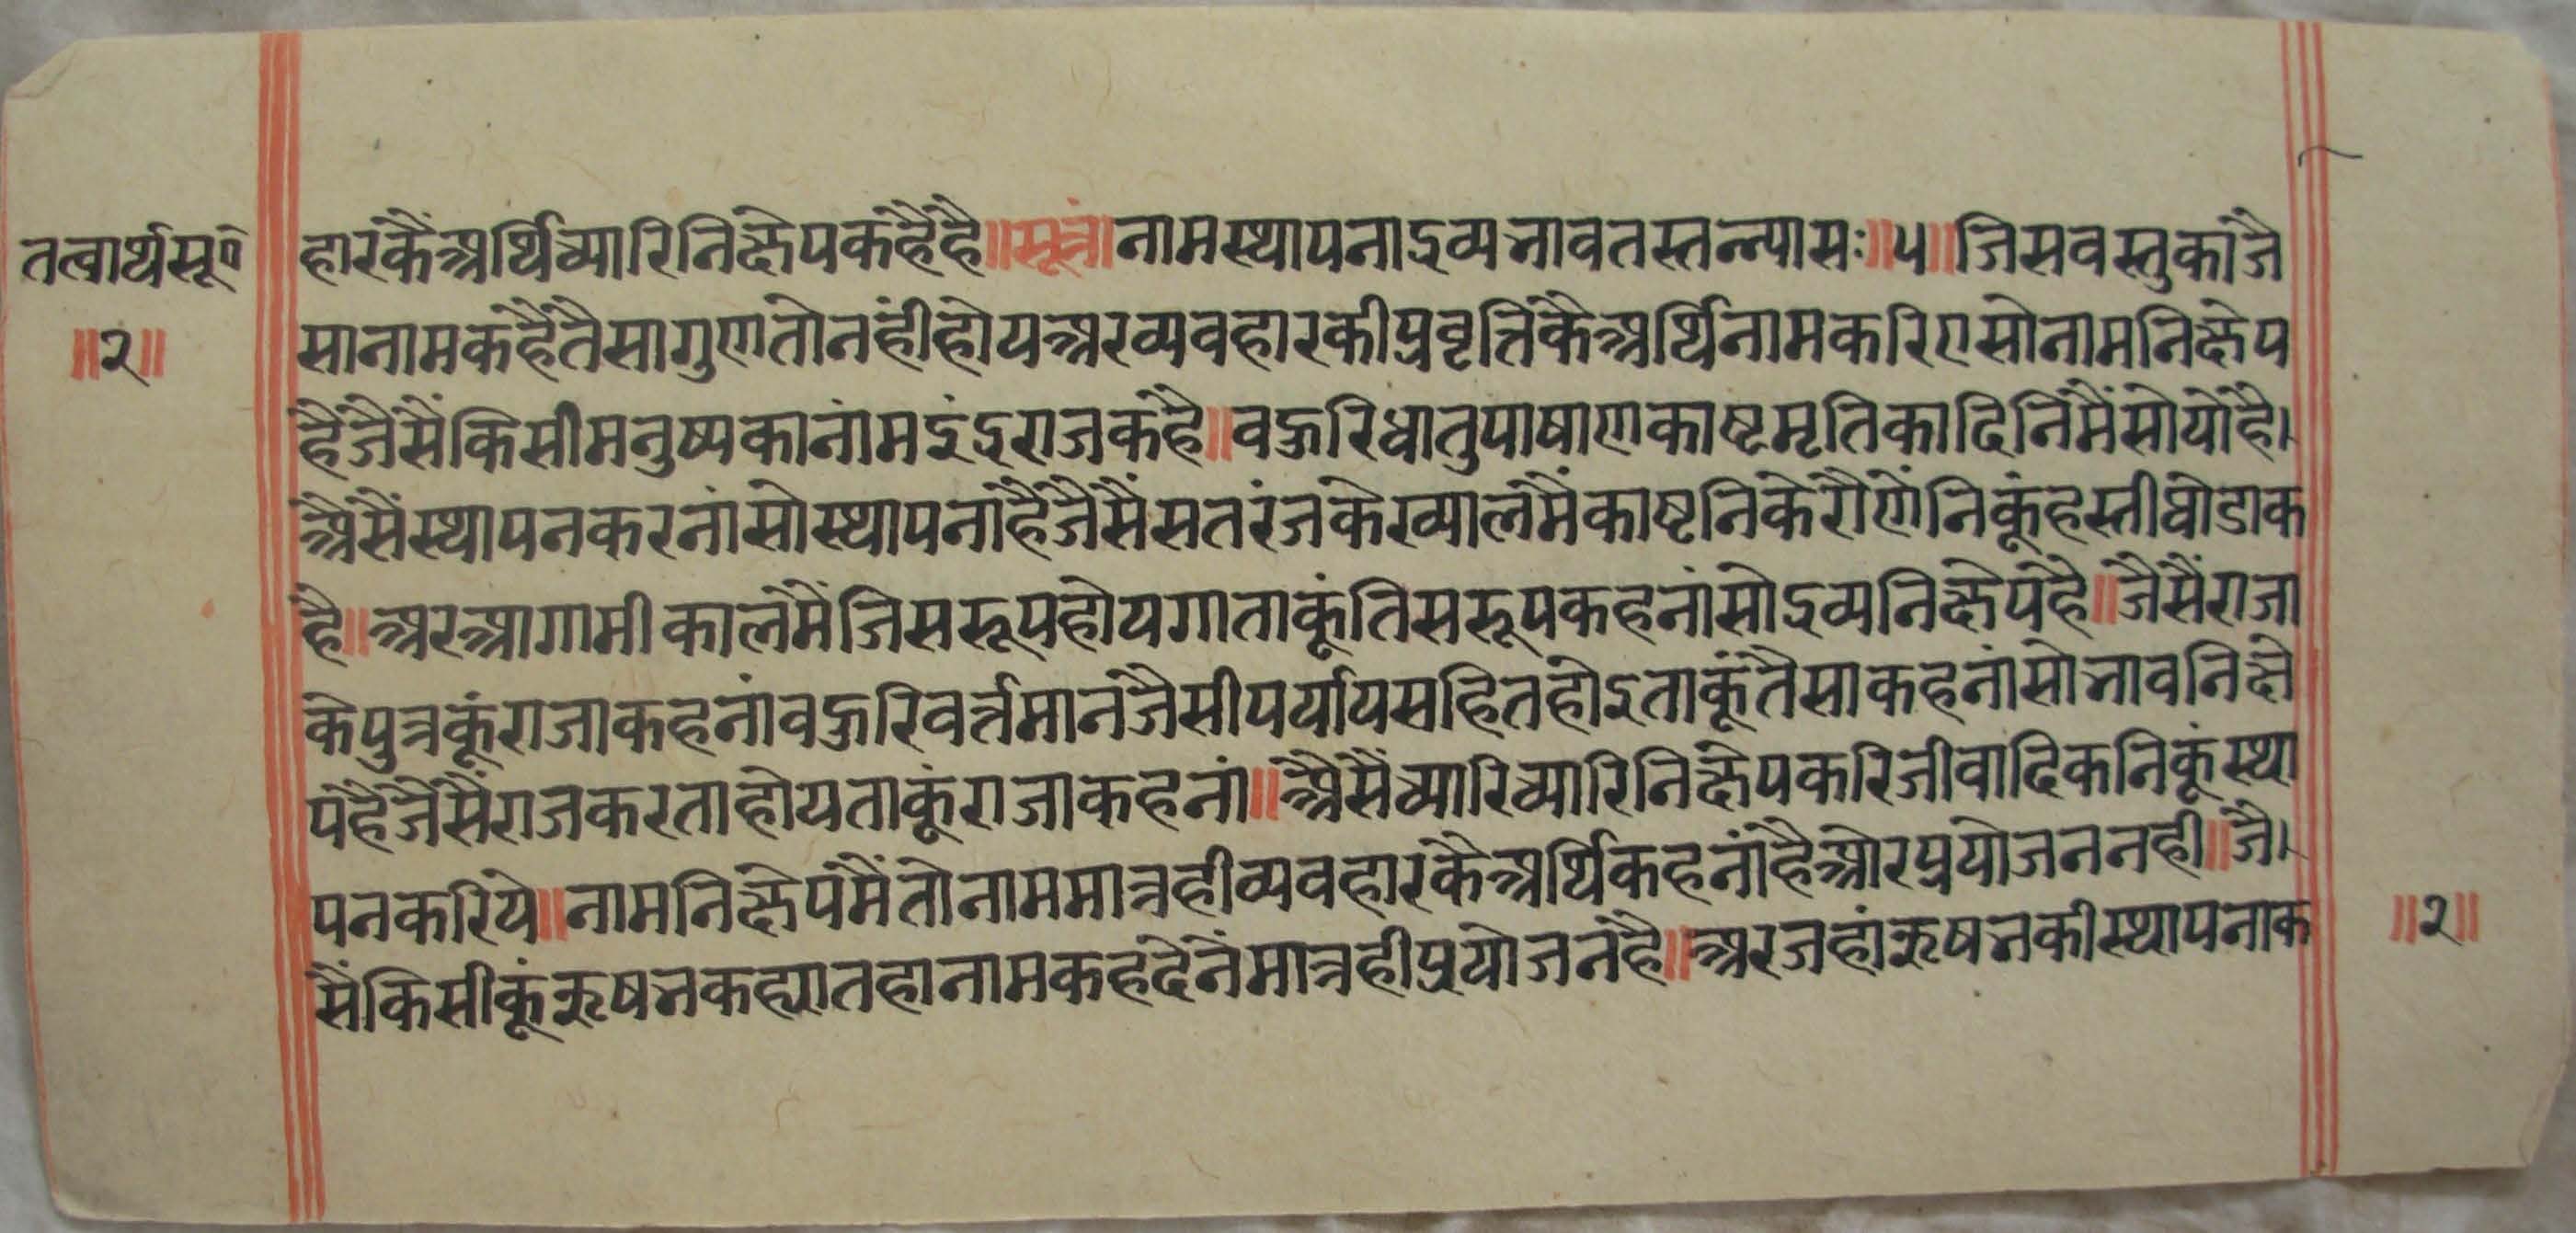 तत्वार्थसू०
॥२॥
हारकैअर्थिच्यारिनिक्षेपकहैहै॥सूत्रं॥नामस्थापनाद्रव्यभावतस्तन्न्यासः॥५॥जिसवस्तुकाजै
सानामकहैतैसागुणतोनहींहोयअरव्यवहारकीप्रवृत्तिकैअर्थिनामकरिएसोनामनिक्षेप
हैजैसैंकिसीमनुष्यकानांमइंद्रराजकहै॥बहुरिधातुपाषाणकाष्टमृतिकादिनिमैंसोयोहै।
अैसैंस्थापनकरनांसोस्थापनांहैजैसैंसतरंजकेख्यालमैंकाष्टनिकेरौणेंनिकूंहस्तीघोडाक
है॥अरआगामीकालमैंजिसरूपहोयगाताकूंतिसरूपकहनांसोद्रव्यनिक्षेपहै॥जैसैंराजा
केपुत्रकूंराजाकहनांबहुरिवर्त्तमानजैसीपर्यायसहितहोइताकूंतैसाकहनांसोभावनिक्षे
पहैजैसैंराजकरताहोयताकूंराजाकहनां॥अैसैंच्यारिच्यारिनिक्षेपकरिजीवादिकनिकूंस्था
पनकरिये॥नामनिक्षेपमैंतोनाममात्रहीव्यवहारकैअर्थिकहनांहैओरप्रयोजननही॥जै।
सैंकिसीकूंऋषभकह्यातहानामकहदेनेंमात्रहीप्रयोजनहै॥अरजहांऋषभकीस्थापनाक
॥२॥